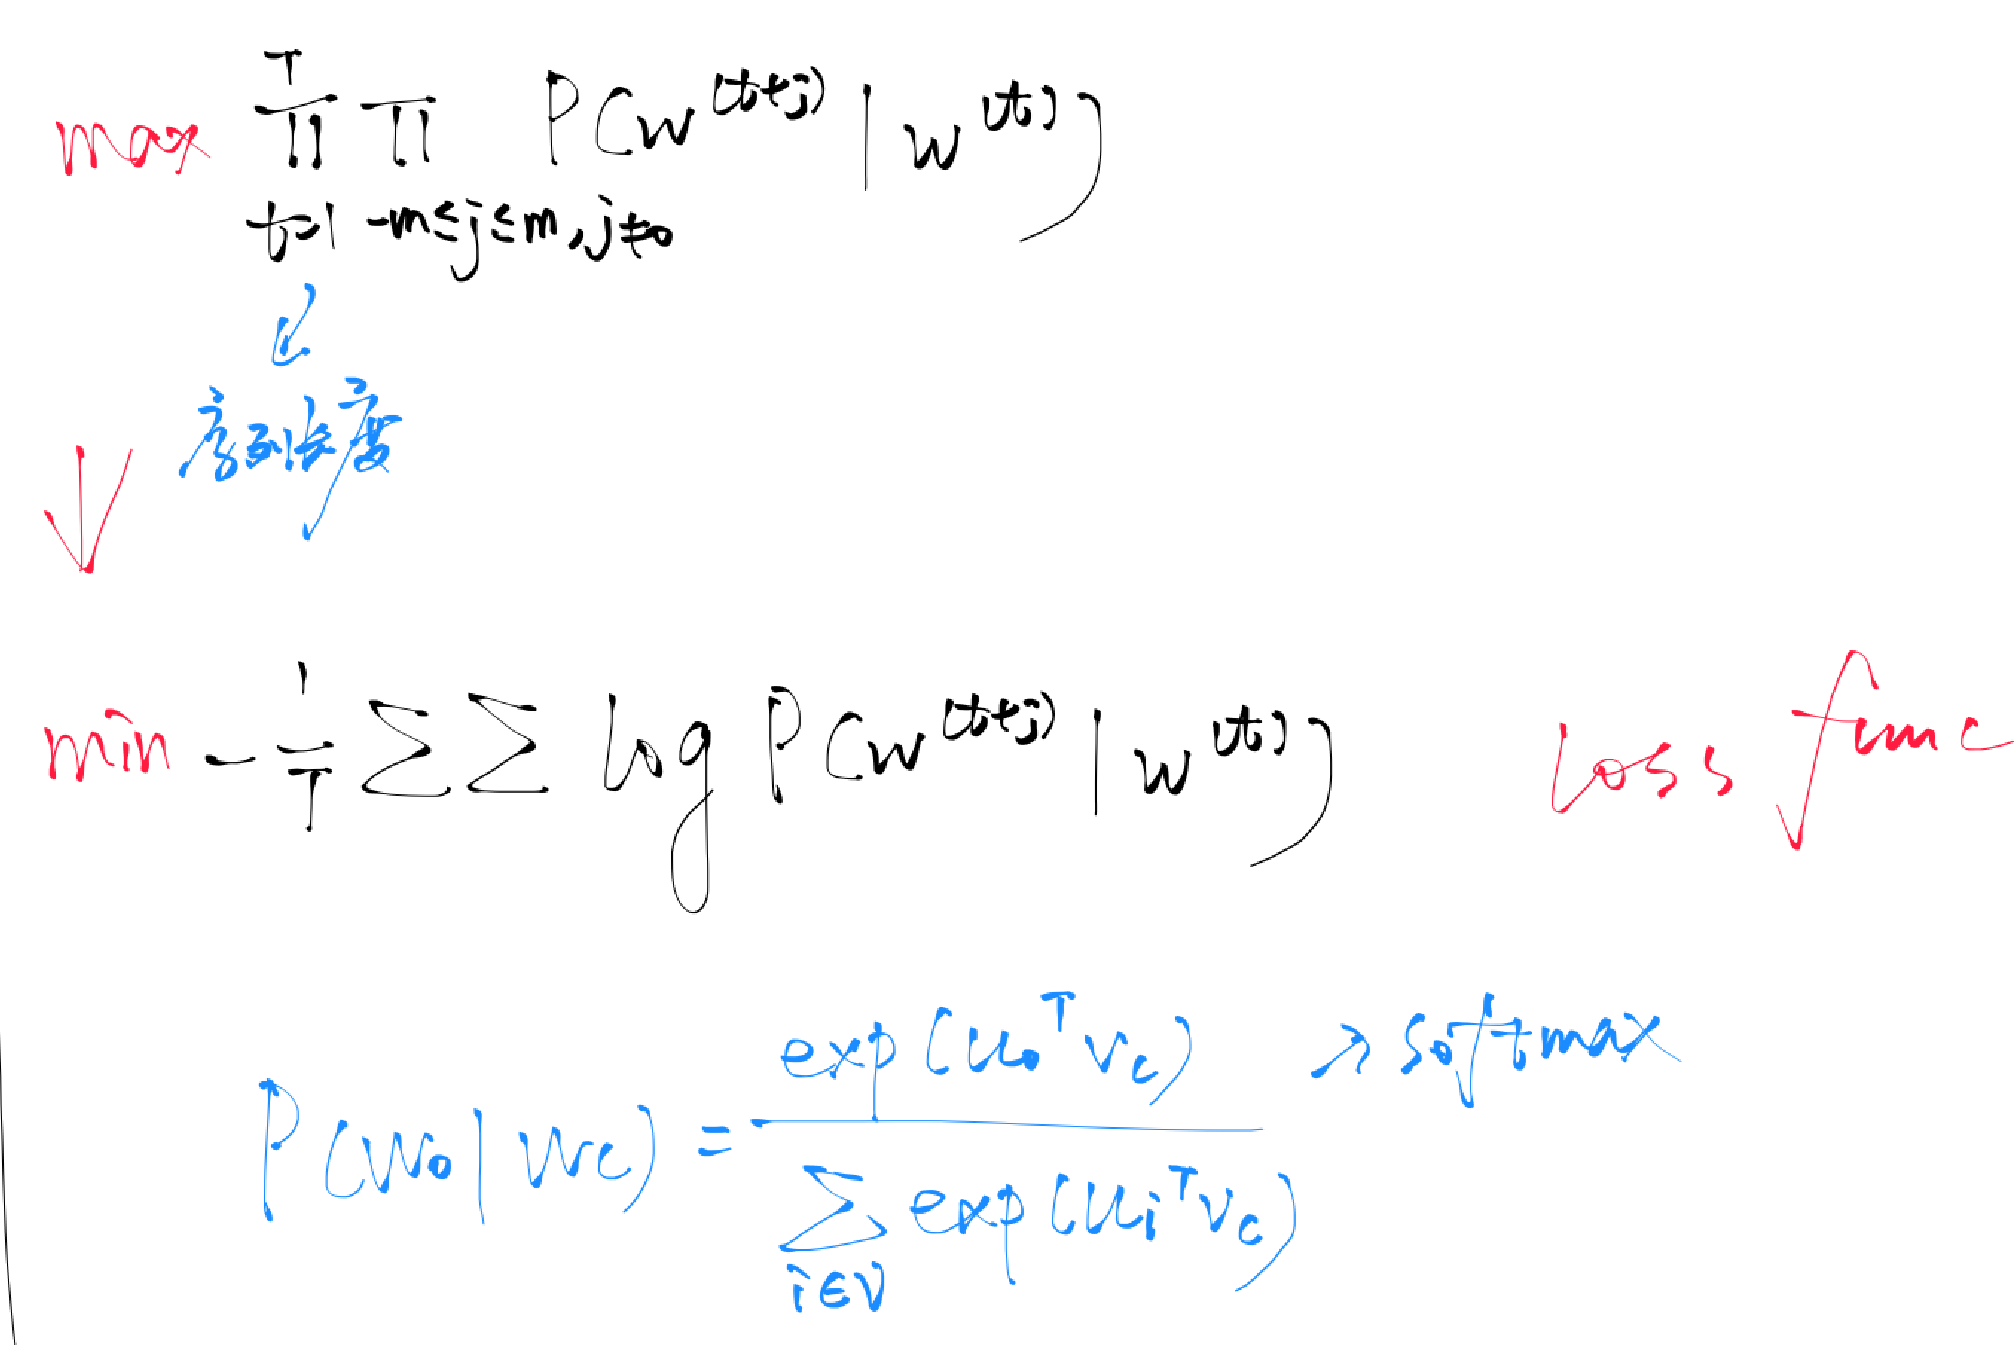 max ∏ ∏ P(w^(t+j) | w^(t))
T
t=1 -m≤j≤m, j≠0
序列长度
min -1/T ∑∑ log P(w^(t+j) | w^(t)) loss func
P(w_o | w_c) = exp(u_o^T v_c) / ∑_{i∈V} exp(u_i^T v_c) softmax